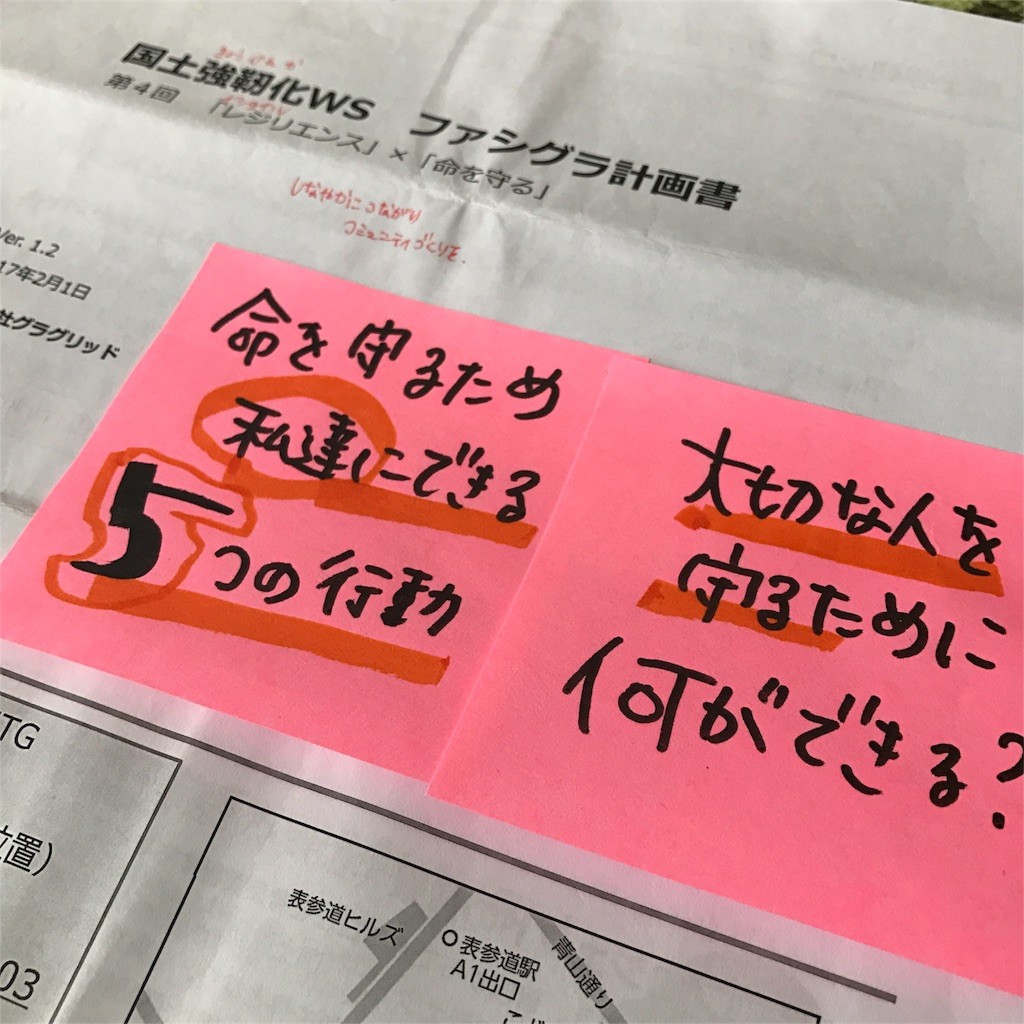 国土強靭化WS ファシグラ計画書
第4回 「レジリエンス」×「命を守る」
しなやかにつながり
コミュニティづくりを。
Ver. 1.2
17年2月1日
社グラグリッド
命を守るため
私達にできる
5つの行動
大切な人を
守るために
何ができる?
TG
位置)
03
表参道ヒルズ
表参道駅
A1出口
青山通り